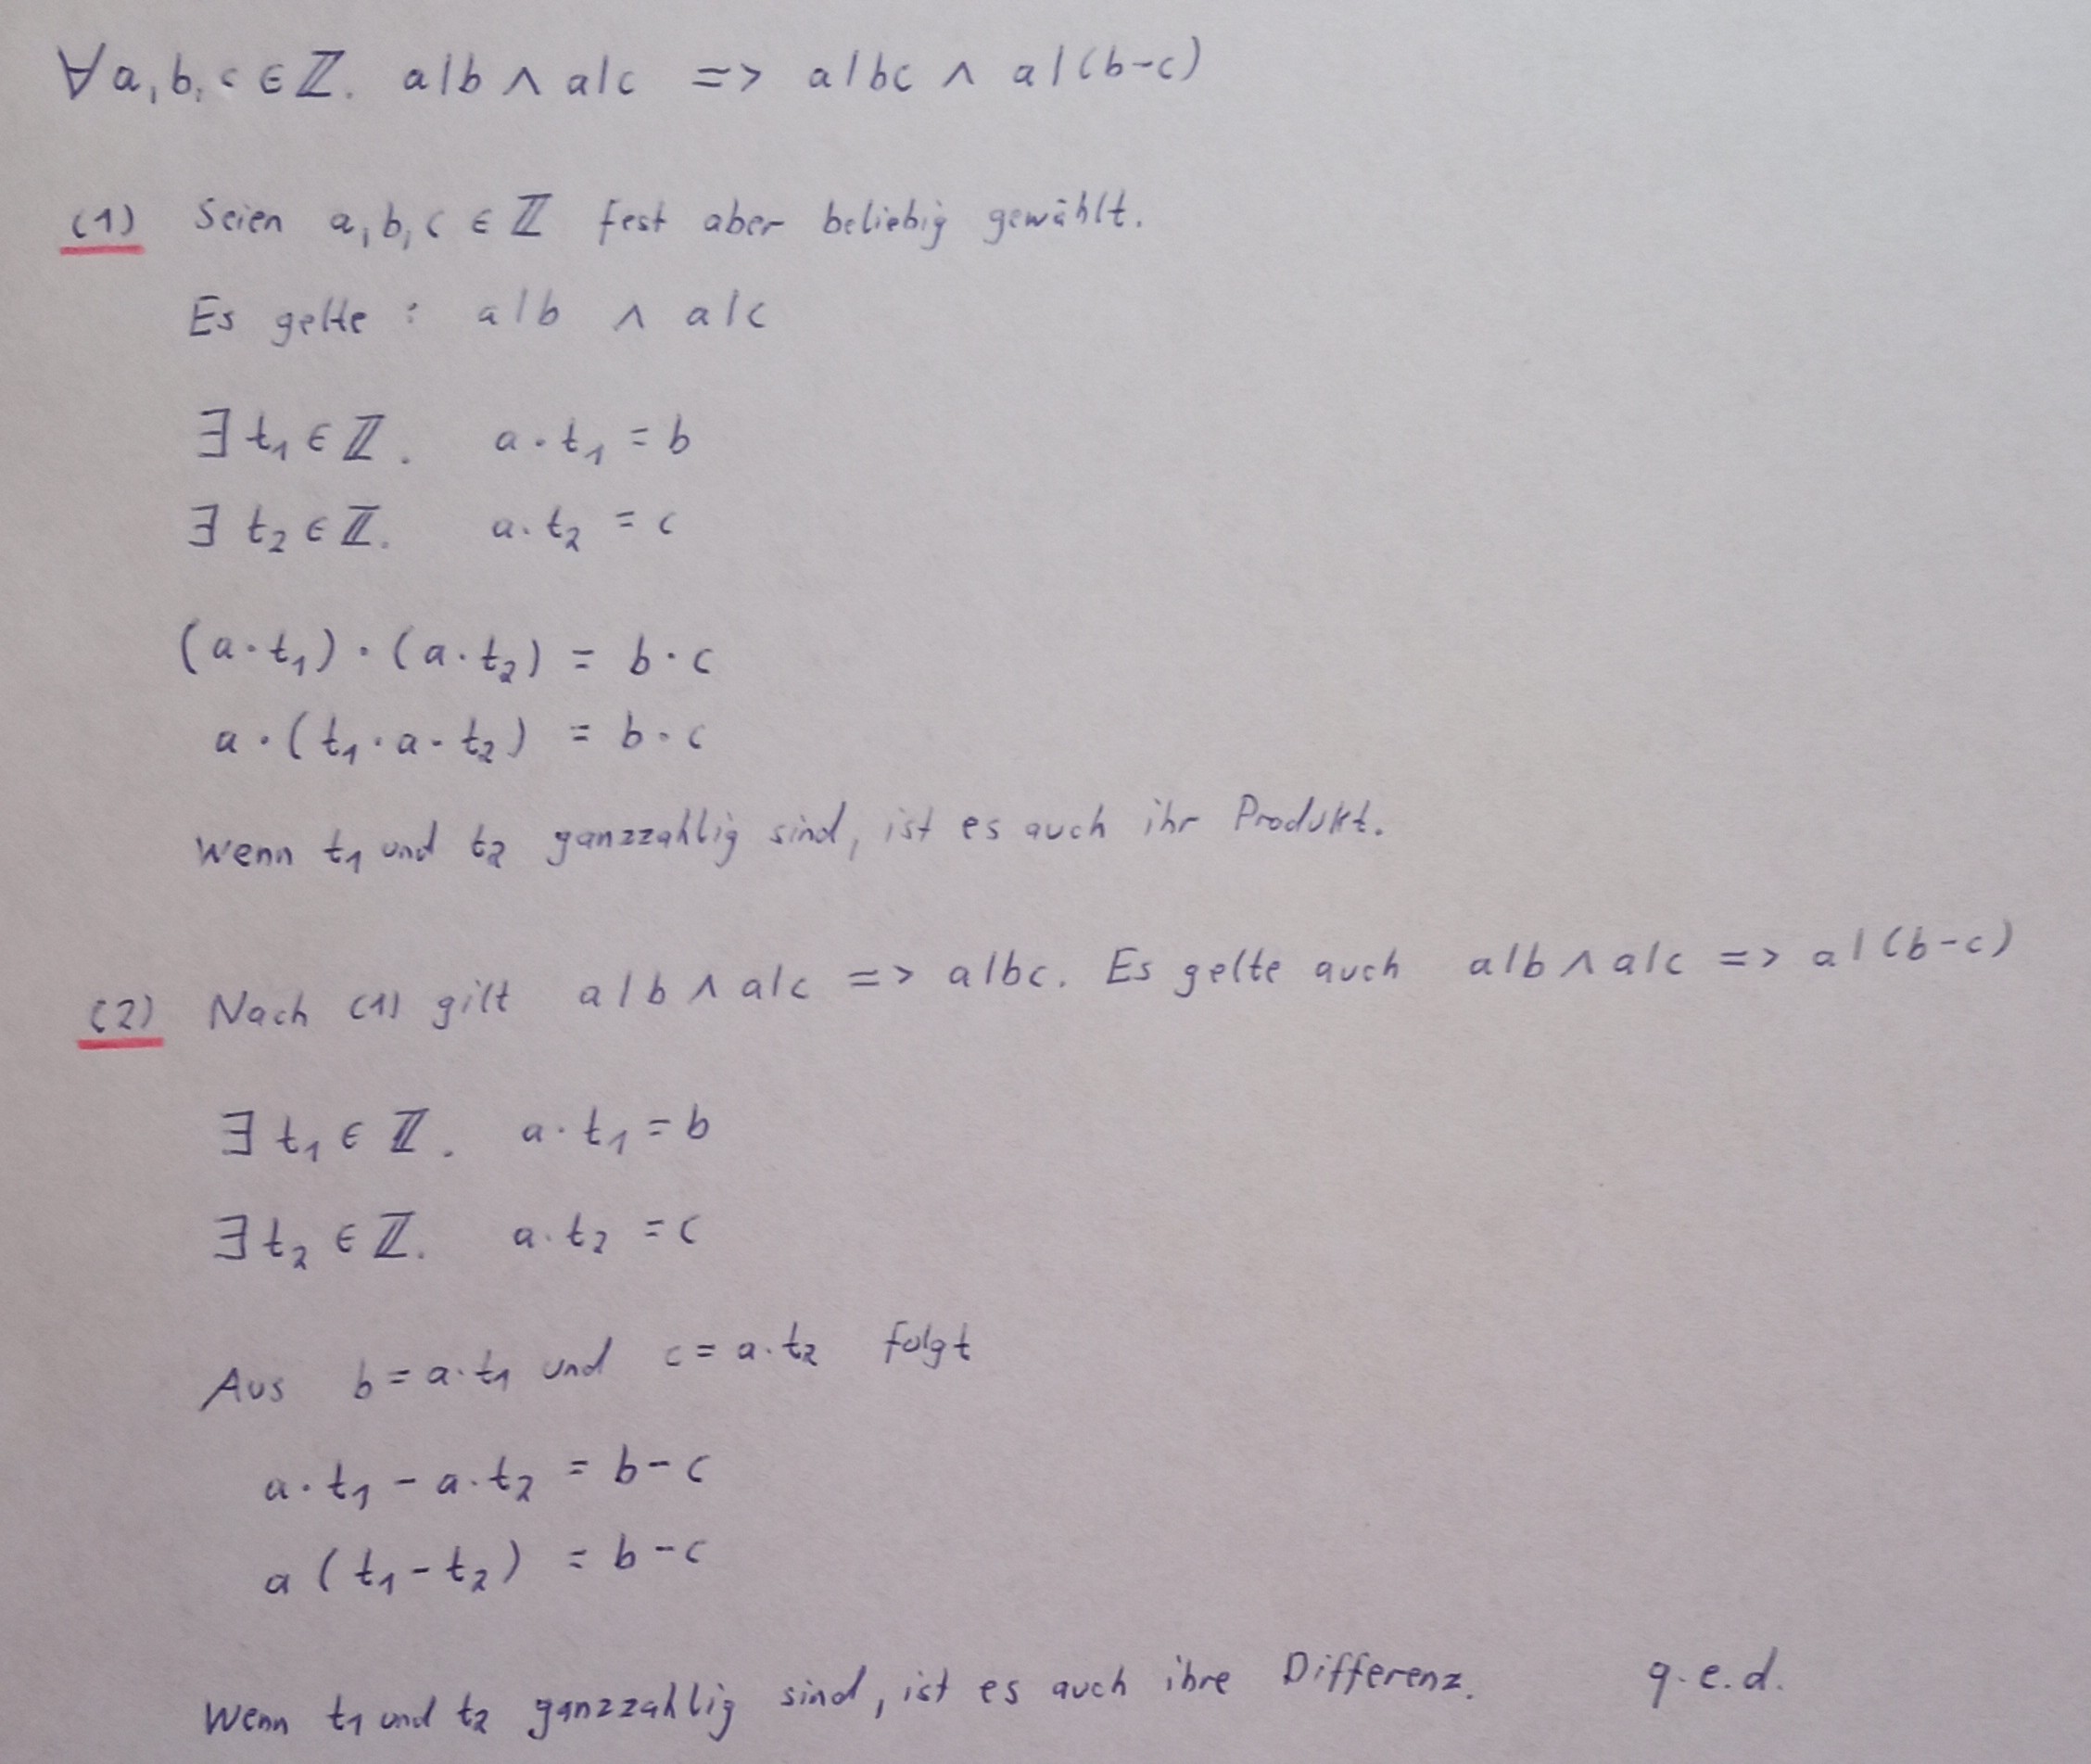 ∀ a, b, c ∈ ℤ. a|b ∧ a|c => a|bc ∧ a|(b-c)
(1) Seien a, b, c ∈ ℤ fest aber beliebig gewählt.
Es gelte : a|b ∧ a|c
∃ t₁ ∈ ℤ. a · t₁ = b
∃ t₂ ∈ ℤ. a · t₂ = c
(a · t₁) · (a · t₂) = b · c
a · (t₁ · a · t₂) = b · c
Wenn t₁ und t₂ ganzzahlig sind, ist es auch ihr Produkt.
(2) Nach (1) gilt a|b ∧ a|c => a|bc. Es gelte auch a|b ∧ a|c => a|(b-c)
∃ t₁ ∈ ℤ. a · t₁ = b
∃ t₂ ∈ ℤ. a · t₂ = c
Aus b = a · t₁ und c = a · t₂ folgt
a · t₁ - a · t₂ = b - c
a (t₁ - t₂) = b - c
Wenn t₁ und t₂ ganzzahlig sind, ist es auch ihre Differenz. q.e.d.